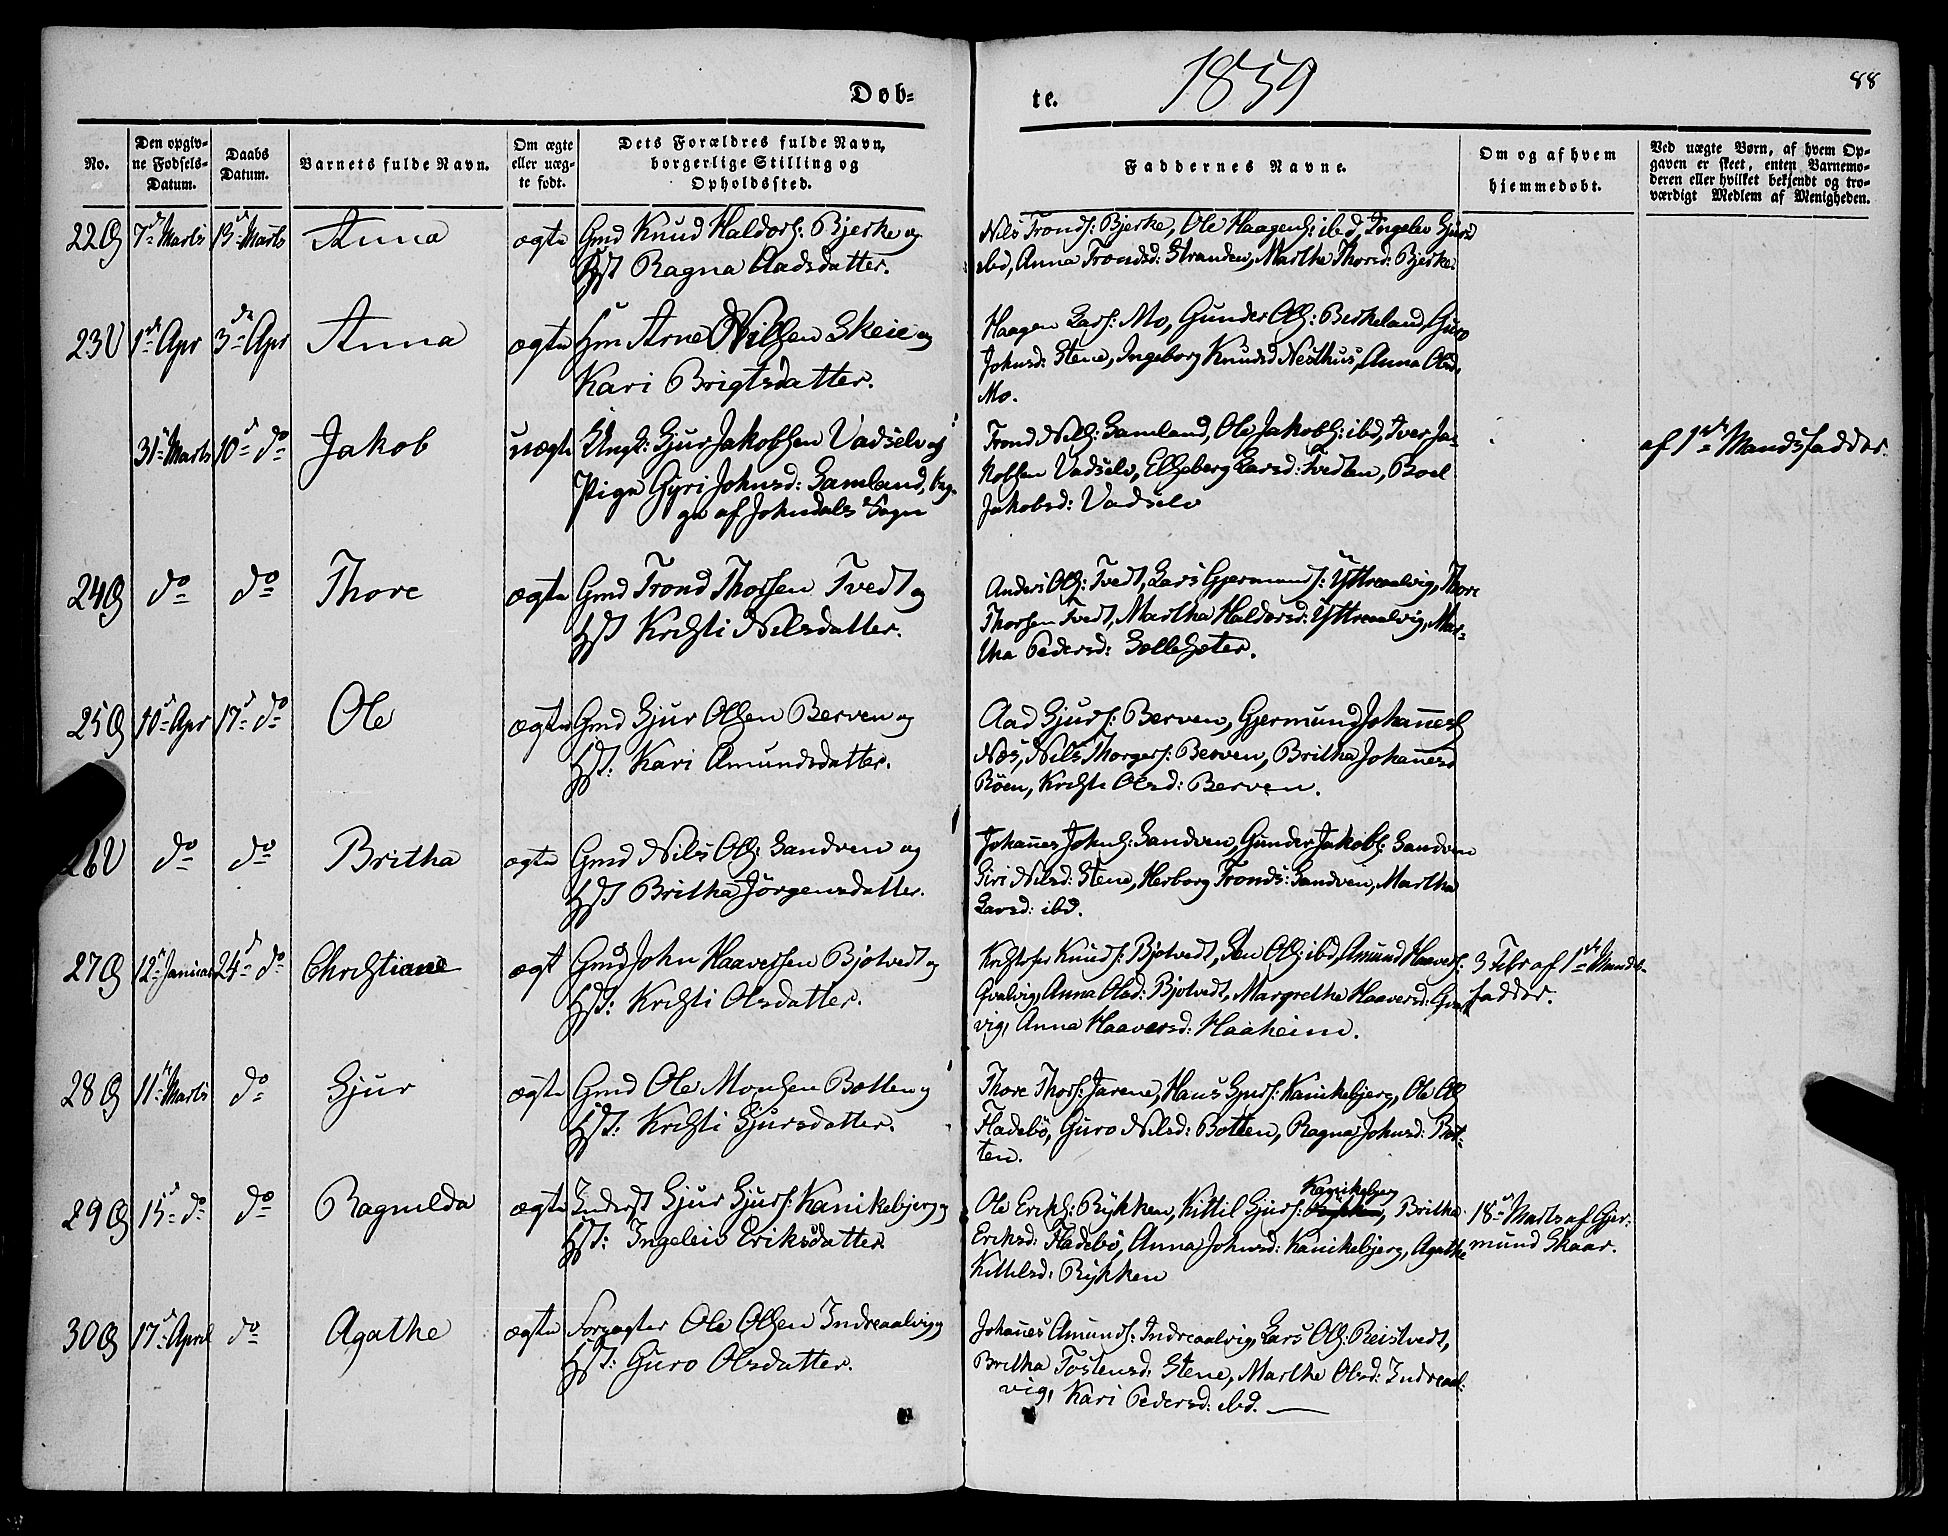 Døb=
te.
1859
88
No.
Den opgiv-
ne Fødsels-
Datum.
Daabs
Datum.
Barnets fulde Navn.
Om ægte
eller uæg-
te født.
Dets Forældres fulde Navn,
borgerlige Stilling og
Opholdssted.
Faddernes Navne.
Om og af hvem
hjemmedøbt.
Ved uægte Børn, af hvem Op-
gaven er skeet, enten Barnemo-
deren eller hvilket bekjendt og tro-
værdigt Medlem af Menigheden.
22 7de Marts 13de Marts Anna ægte Gmd Knud Haldors: Bjerke og
Hst Ragna Aadsdatter.
Nils Tronds: Bjerke, Ole Haagens: ibd, Ingelev Sjursd
ibd, Anna Trondsd: Stranden, Marthe Thorsd: Bjerke.
23U 1ste Apr 3die Apr Anna ægte Hm Arne Nilssen Skeie og
Kari Brigtsdatter.
Haagen Lars: Mo, Gunder Ols: Berkeland, Guro
Johnsd: Stene, Ingeborg Knudsd Nesthus, Anna Olsd.
Mo.
31te Marts 10de do Jakob uægte Ungk: Sjur Jakobsen Vadselv og
Pige Gyri Johnsd: Samland, beg-
ge af Jondals Sogn
Trond Nils: Samland, Ole Jakobs: ibd, Iver Ja-
kobsen Vadselv, Elseberg Larsd: Tvedten, Boel
Jakobsd: Vadselv
af 1ste Mandsfadder.
24 do do Thore ægte Gmd Trond Thorsen Tvedt og
Hst Kristi Nilsdatter.
Anders Ols: Tvedt, Lars Gjermunds: Yttreaalvig, Thore
Thorsen Tvedt, Martha Haldorsd: Yttreaalvig, Mar-
tha Pedersd: Sollesæter.
25 10de Apr 17de do Ole ægte Gmd Sjur Olsen Berven og
Hst: Kari Amundsdatter.
Aad Sjurs: Berven, Gjermund Johannes
Næs, Nils Thorgers: Berven, Britha Johannesd
Röen, Kristi Olsd: Berven.
26U do do Britha ægte Gmd Nils Ols: Sandven og
Hst Britha Jörgensdatter.
Johannes Johns: Sandven, Gunder Jakobs: Sandven
Siri Nilsd: Stene, Herborg Tronds: Sandven, Martha
Larsd: ibd.
27 12te Januar 24de do Christiane ægt Gmd John Haaversen Bjotvedt og
Hst: Kristi Olsdatter.
Kristofer Knuds: Bjotvedt, Sten Ols: ibd, Amund Haavers:
Qvalvig, Anna Olsd: Bjotvedt, Margrethe Haaversd: Qval-
vig, Anna Haaversd: Haaheim.
3 Febr af 1ste Mands-
fadder.
28 11te Marts do Sjur ægte Gmd Ole Monsen Botten og
Hst: Kristi Sjursdatter.
Thore Thors: Jarene, Hans Sjurs: Kanikebjerg, Ole Ols
Fladebö, Guro Nilsd: Botten, Ragna Johnsd: Bot-
ten.
29 15de do do Ragnilda ægte Inderst Sjur Sjurs: Kanikebjerg og
Hst: Ingeleiv Eriksdatter.
Ole Eriks: Rykken, Kittil Sjurs: Kanikebjerg, Britha
Eriksd: Fladebö, Anna Johnsd: Kanikebjerg, Agathe
Kittelsd: Rykken
18de Marts af Gjer-
mund Skaar.
30 17de April do Agathe ægte Forpagter Ole Olsen Indreaalvig og
Hst: Guro Olsdatter.
Johannes Amunds: Indreaalvig, Lars Ols: Reistvedt,
Britha Tostensd: Stene, Marthe Olsd: Indreaal-
vig, Kari Pedersd: ibd.